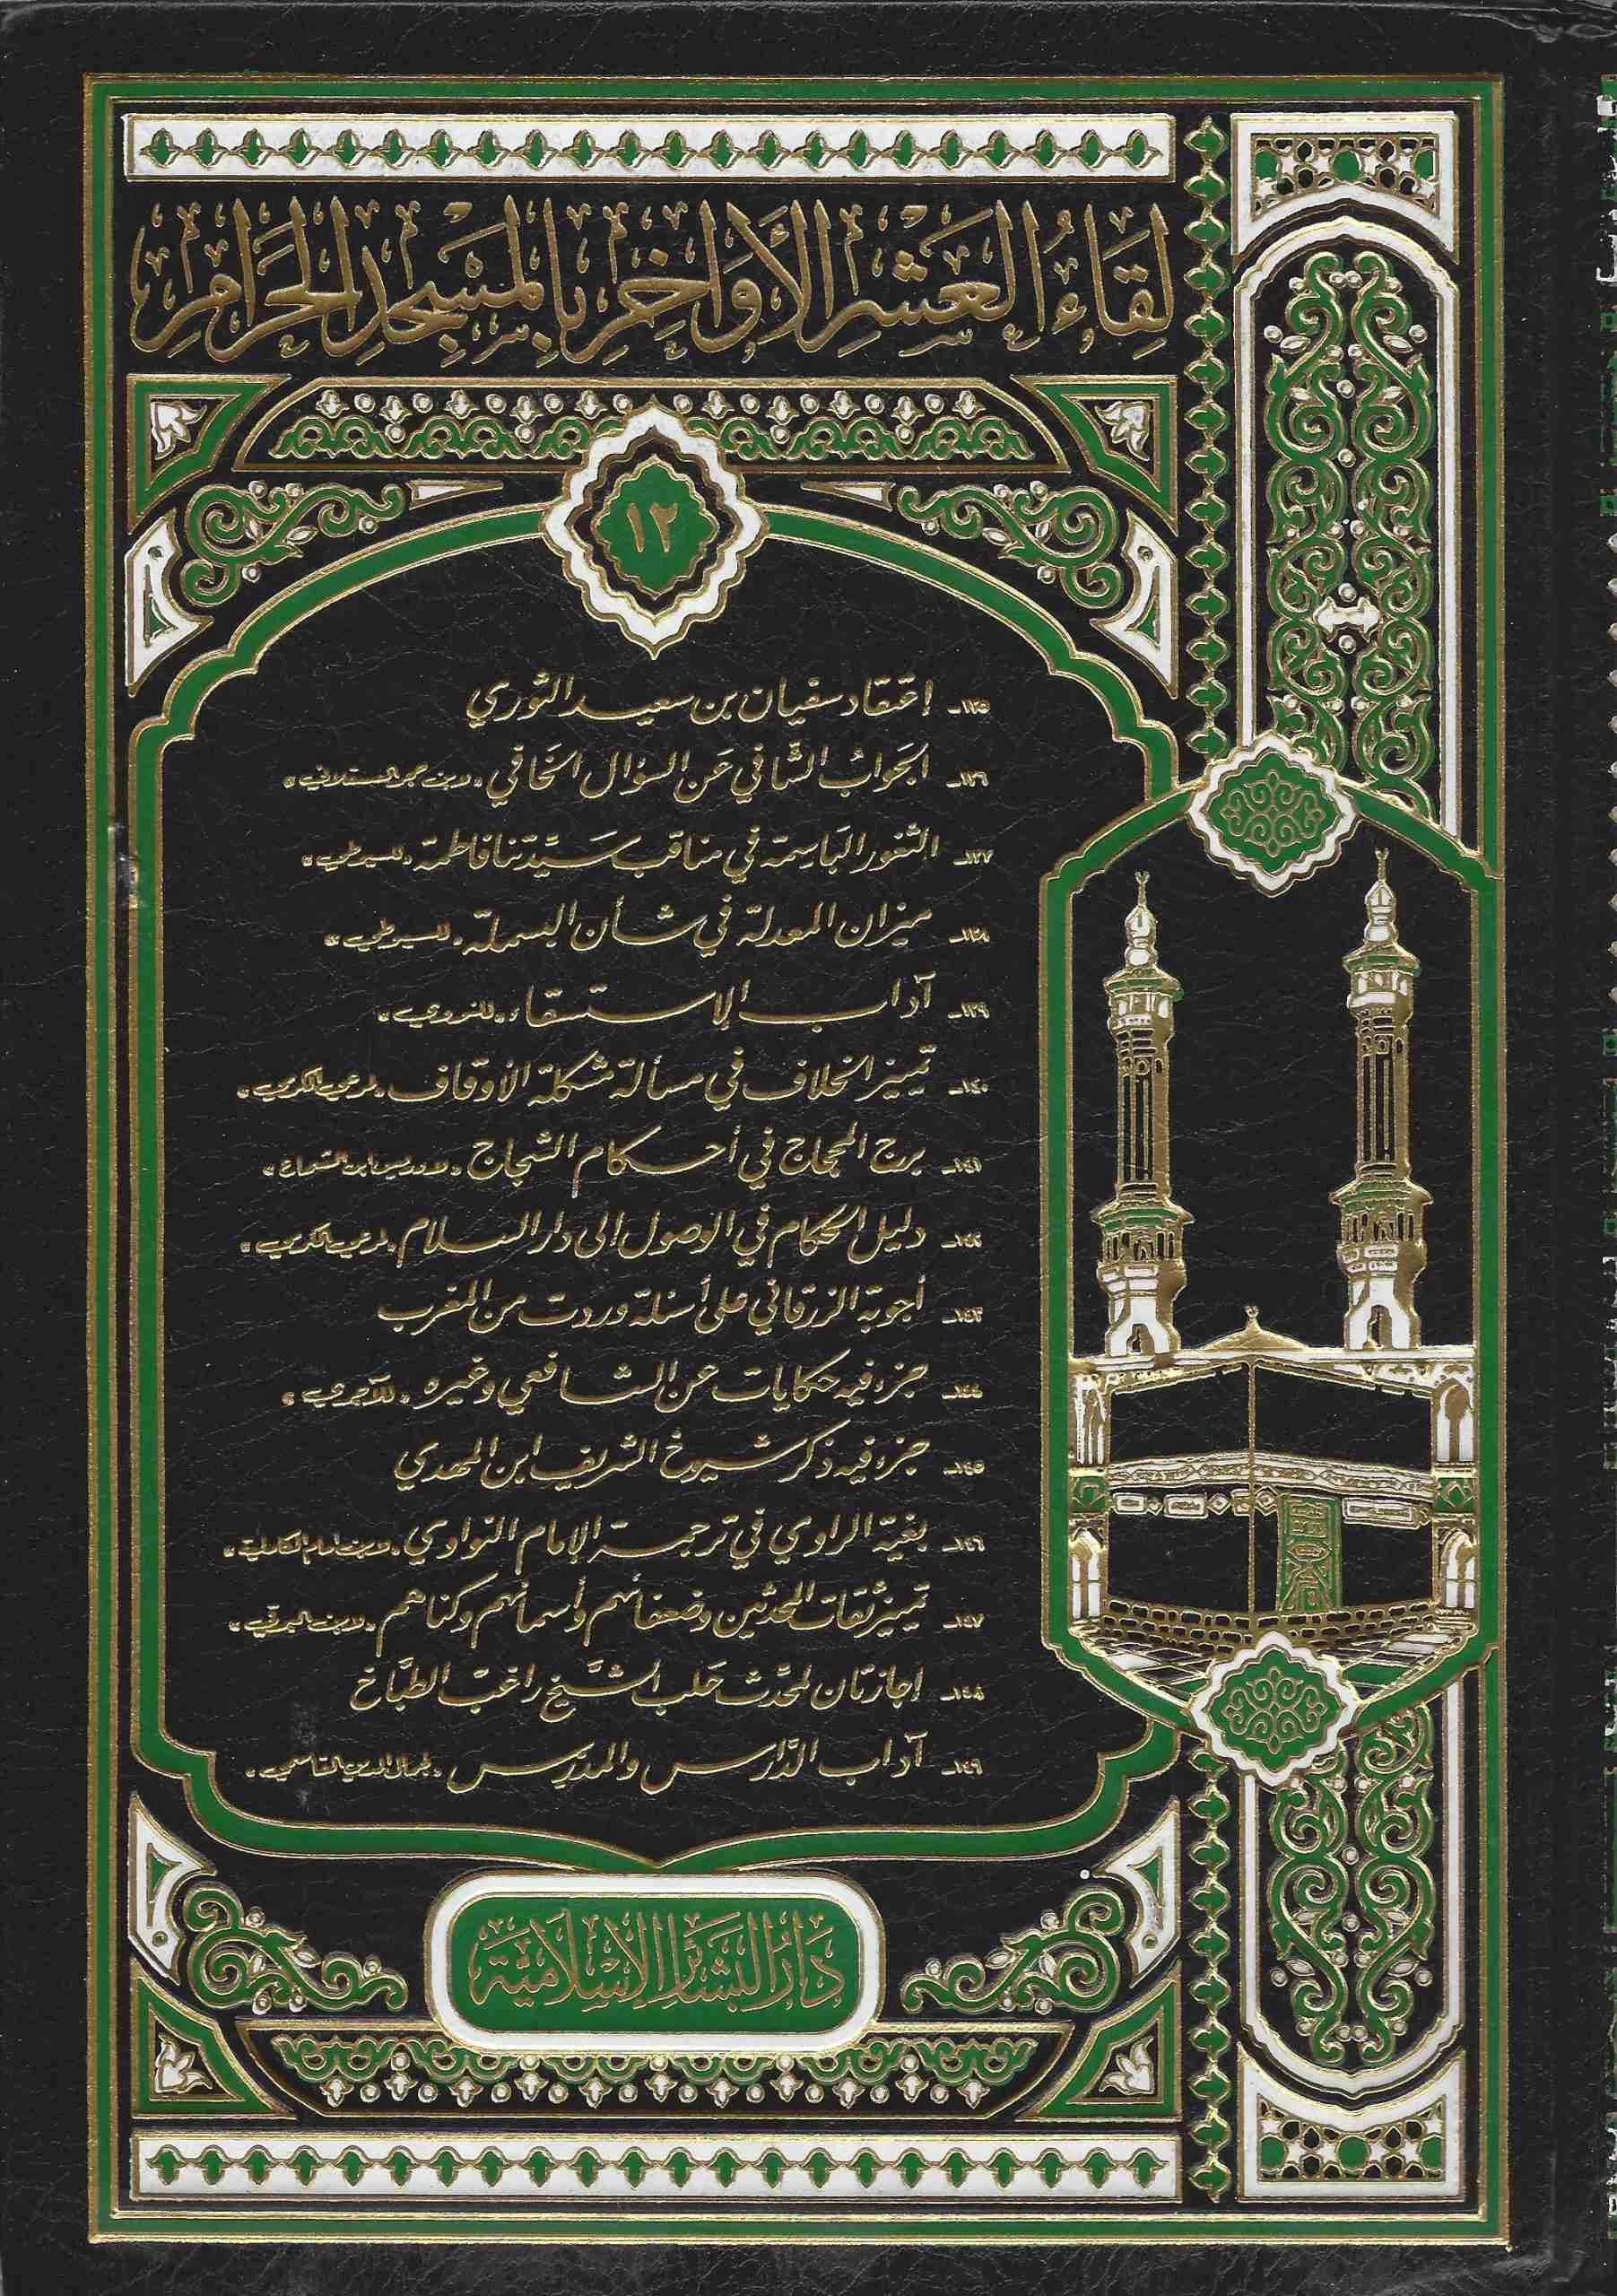 لِقَاءُ العَشْرِ الأَوَاخِرِ بِالمَسْجِدِ الحَرَامِ
١٢
١٣٥ـ إعتقاد سفيان بن سعيد الثوري
١٣٦ـ الجَوابُ الشَّافي عَن السؤال الخَافي «لابن حجر العسقلاني»
١٣٧ـ الثغور البَاسِمة في مناقب سَيِّدتنا فاطمة «للسيوطي»
١٣٨ـ ميزان المعدلة في شأن البسملة «للسيوطي»
١٣٩ـ آداب الاستسقاء «للنووي»
١٤٠ـ تمييز الخلاف في مسألة مشكلة الأوقاف «لمرعي الكرمي»
١٤١ـ برج المحجاج في أحكام الشجاج «لإدريس ابن الشماع»
١٤٢ـ دليل الحكام في الوصول إلى دار السلام «لمرعي الكرمي»
١٤٣ـ أجوبة الزرقاني على أسئلة وردت من المغرب
١٤٤ـ جزء فيه حكايات عن الشافعي وغيره «للآجري»
١٤٥ـ جزء فيه ذكر شيوخ الشريف ابن المهدي
١٤٦ـ بغية الراوي في ترجمة الإمام النواوي «لابن إمام الكاملية»
١٤٧ـ تمييز ثقات المحدثين وضعفائهم وأسمائهم وكناهم «لابن البرقي»
١٤٨ـ إجازتان لمحدّث حَلب الشَّيخ راغب الطبَّاخ
١٤٩ـ آداب الدَّارس والمدرّس «لجمال الدين القاسمي»
دَارُ البَشَائِرِ الإِسْلَامِيَّة